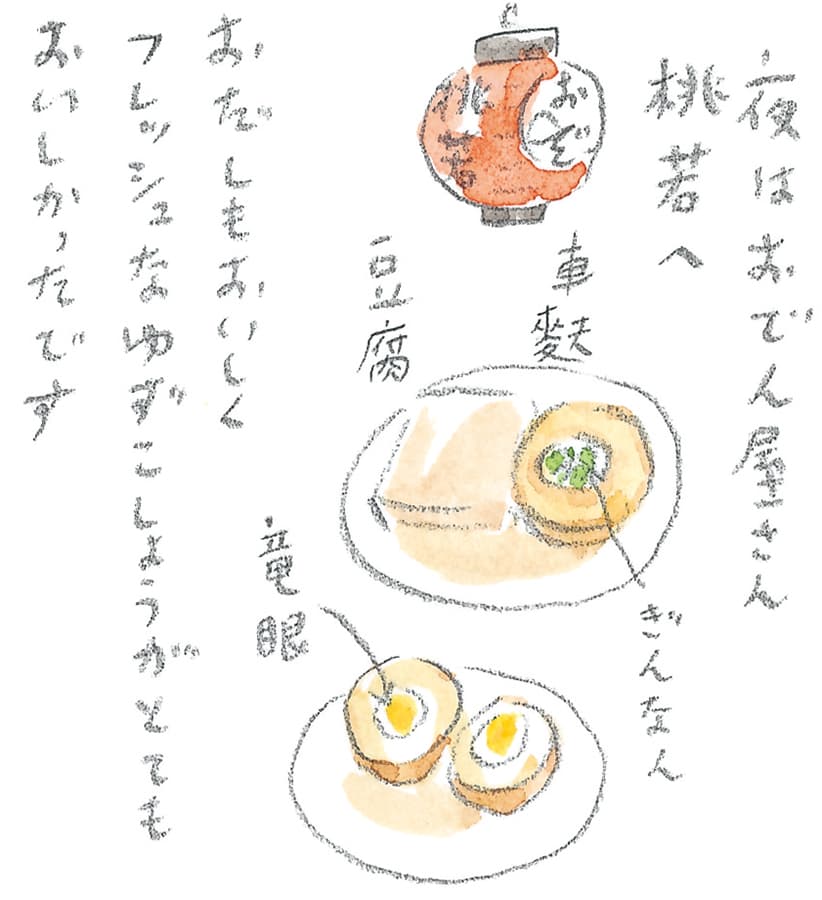 夜はおでん屋さん
桃若へ
おで
桃若
車麩
豆腐
ぎんなん
竜眼
おだしもおいしく
フレッシュなゆずこしょうがとても
おいしかったです